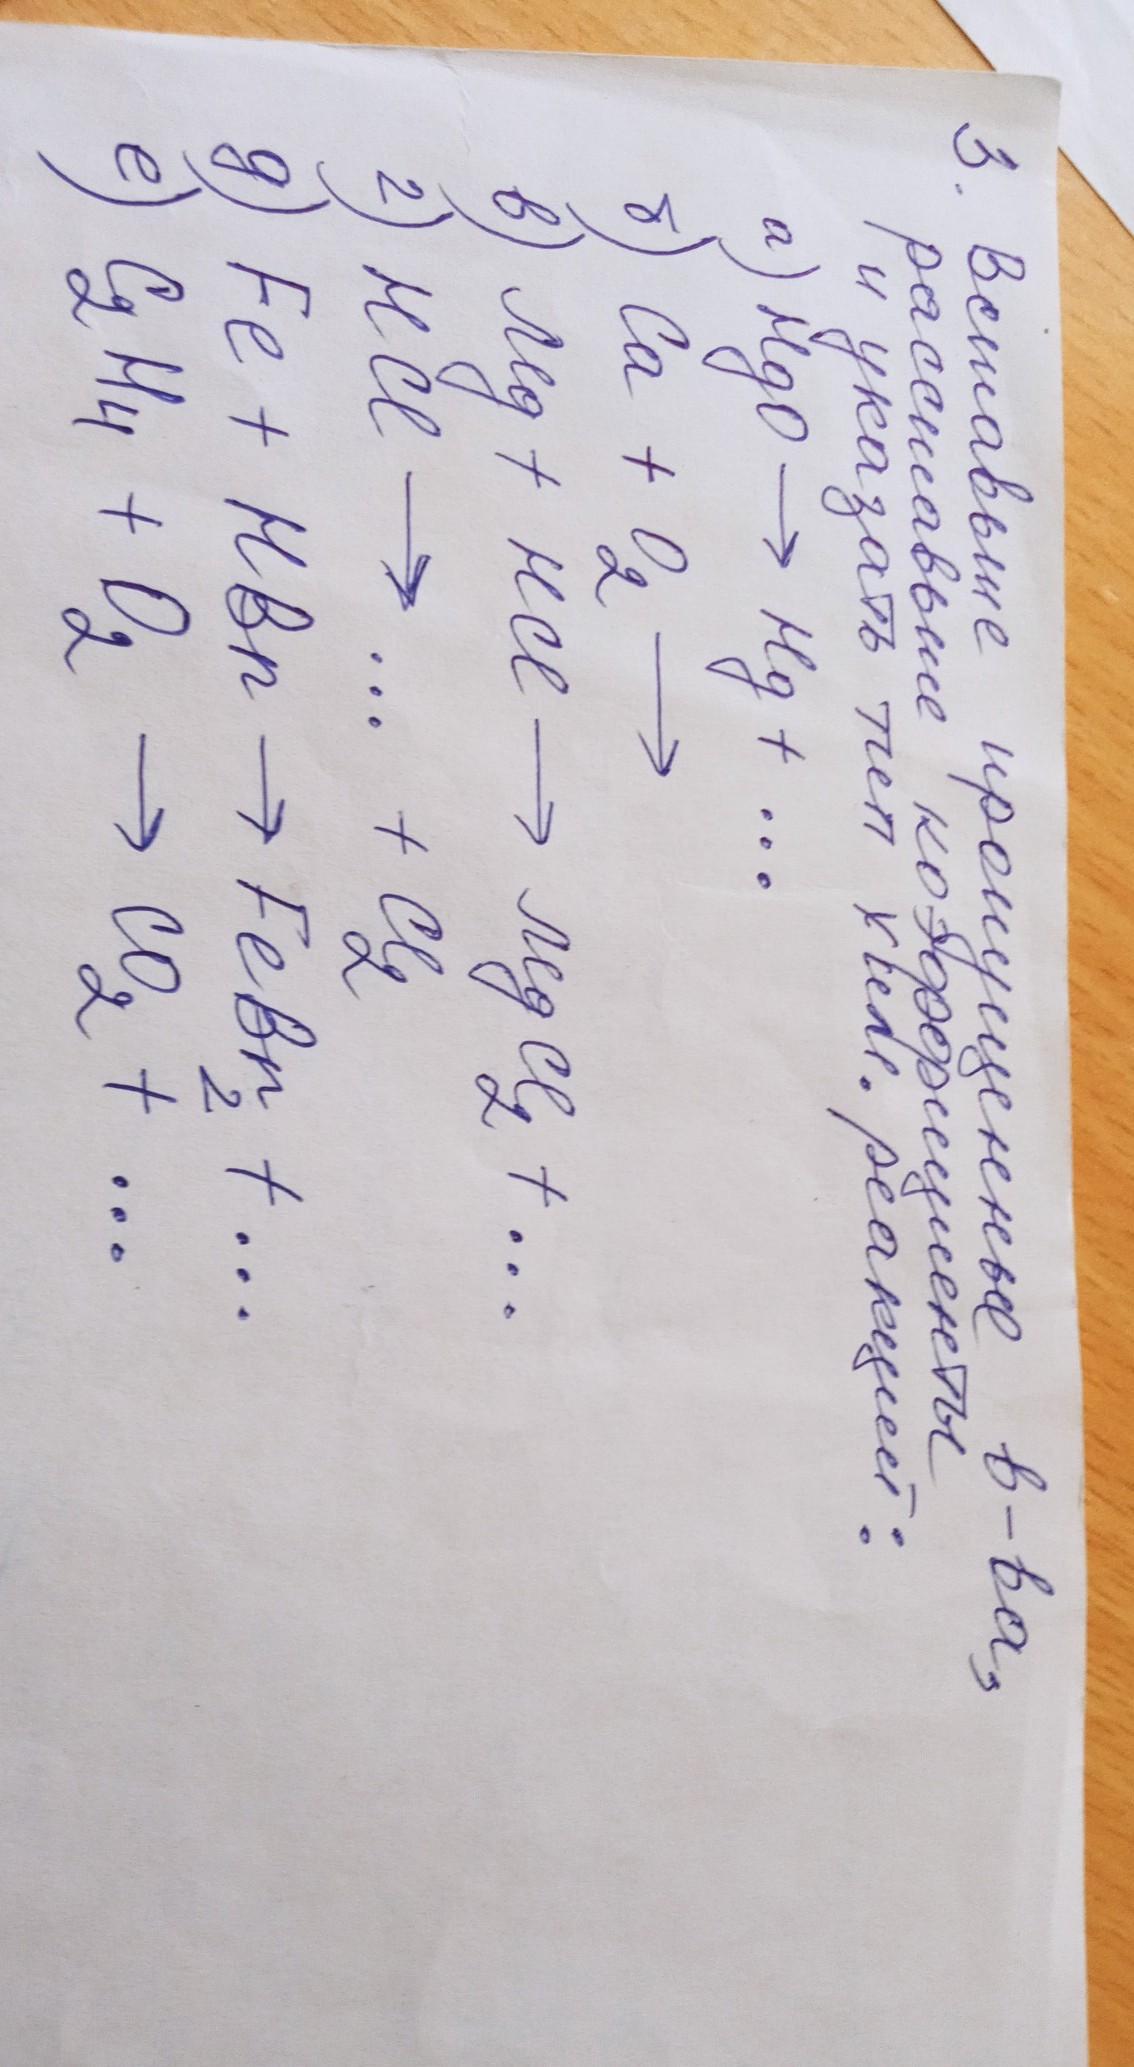 3. Вставьте пропущенные в-ва,
расставьте коэффициенты
и указать тип хим. реакций:
а) HgO → Hg + ...
б) Ca + O2 →
в) Mg + HCl → MgCl2 + ...
г) HCl → ... + Cl2
д) Fe + HBr → FeBr2 + ...
е) C2H4 + O2 → CO2 + ...